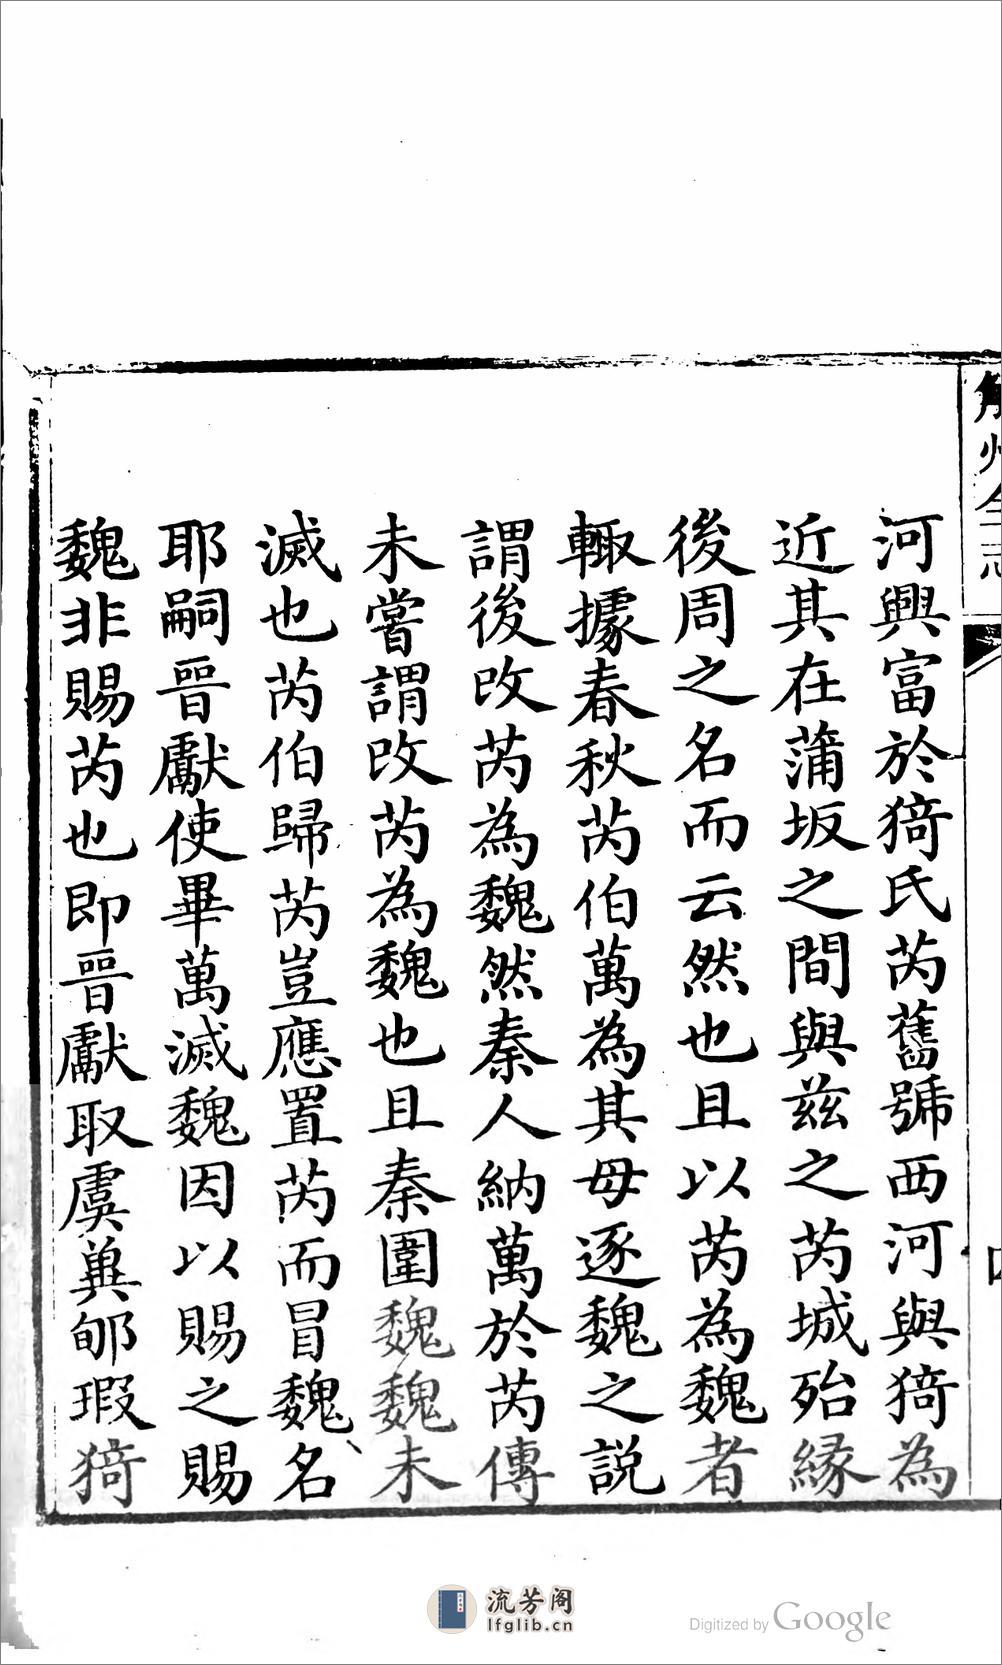 解州全志
河興富於猗氏芮舊號西河與猗為
近其在蒲坂之間與兹之芮城殆縁
後周之名而云然也且以芮為魏者
輙據春秋芮伯萬為其母逐魏之説
謂後改芮為魏然秦人納萬於芮傳
未嘗謂改芮為魏也且秦圍魏魏未
滅也芮伯歸芮豈應置芮而冒魏名
耶嗣晉獻使畢萬滅魏因以賜之賜
魏非賜芮也即晉獻取虞冀郇瑕猗
流芳阁
lfglib.cn
Digitized by Google